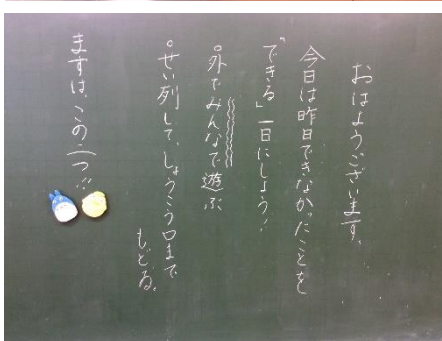 おはようございます。
今日は昨日できなかったことを
「できる」一日にしよう！
○外でみんなで遊ぶ
○せい列して、しょうこう口まで
もどる。
まずは、この二つ!!